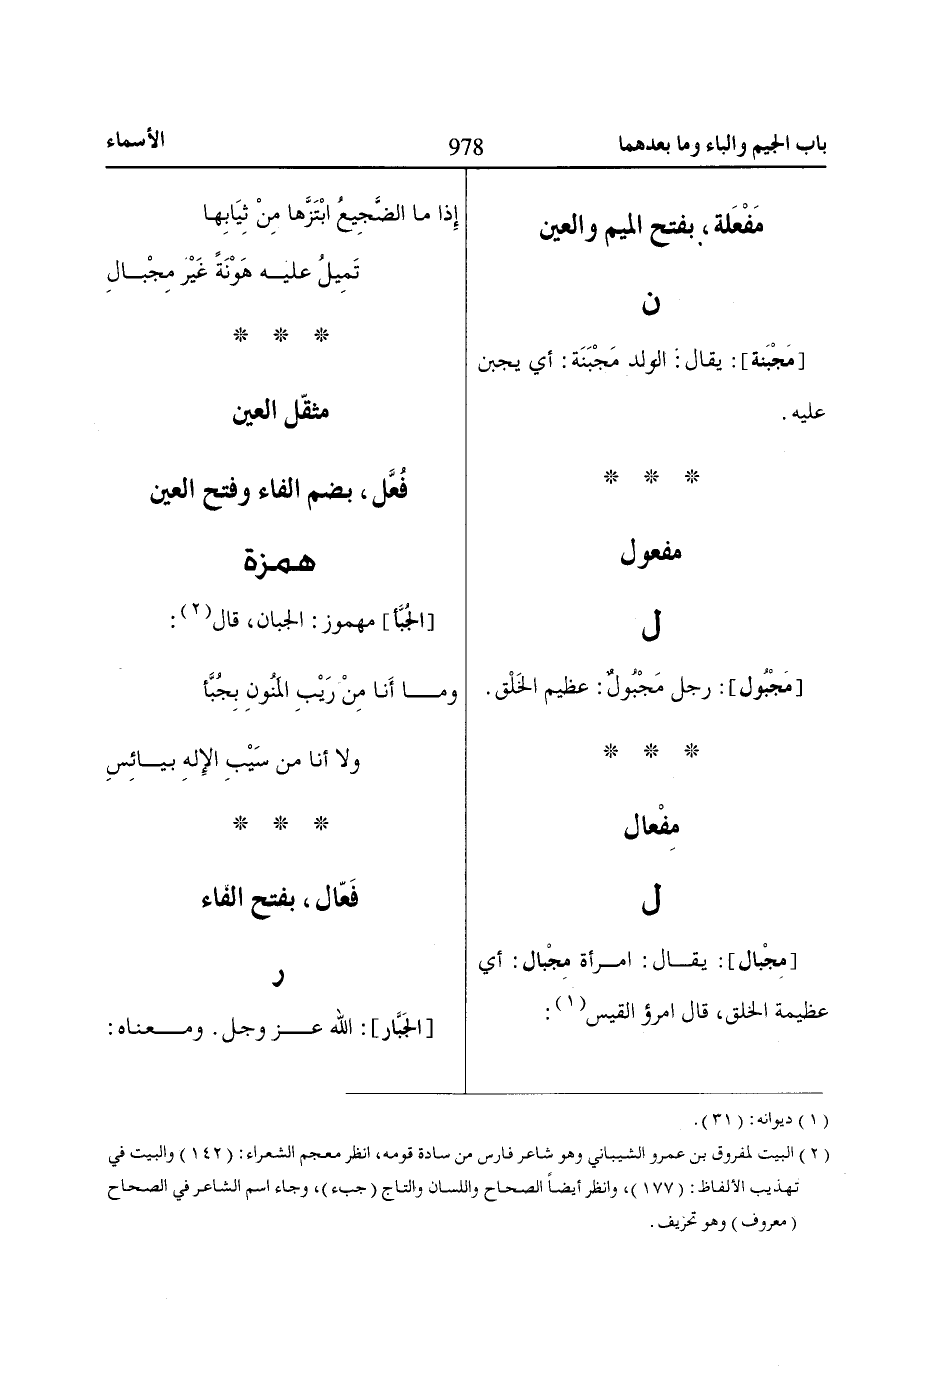 باب الجيم والباء وما بعدهما
978
الأسماء
مَفْعَلة، بفتح الميم والعين
ن
[مَجْبَنة]: يقال: الولد مَجْبَنَة: أي يجبن
عليه.
* * *
مفعول
ل
[مَجْبُول]: رجل مَجْبُولٌ: عظيم الخَلْق.
* * *
مِفْعال
ل
[مِجْبال]: يقـــال: امـــرأة مِجْبال: أي
عظيمة الخلق، قال امرؤ القيس(١):
إذا ما الضَّجيعُ ابْتَزَّها مِنْ ثِيَابِها
تَمِيلُ عليــه هَوْنَةً غَيْرَ مِجْبــال
* * *
مثقّل العين
فُعَّل، بضم الفاء وفتح العين
همزة
[الجُبَّأ] مهموز: الجبان، قال(٢):
ومـــا أَنا مِنْ رَيْبِ المَنُونِ بِجُبَّأ
ولا أنا من سَيْبِ الإِلهِ بيــائسِ
* * *
فَعّال، بفتح الفاء
ر
[الجَبَّار]: الله عـــز وجل. ومـــعناه:
(١) ديوانه: (٣١).
(٢) البيت لمفروق بن عمرو الشيباني وهو شاعر فارس من سادة قومه، انظر معجم الشعراء: (١٤٢) والبيت في
تهذيب الألفاظ: (١٧٧)، وانظر أيضاً الصحاح واللسان والتاج (جبء)، وجاء اسم الشاعر في الصحاح
(معروف) وهو تحريف.